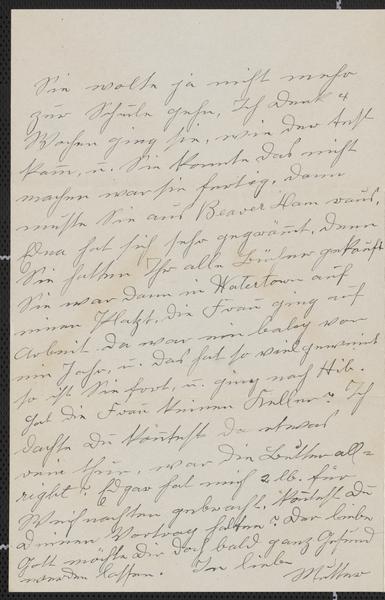 Sie wolte ja nicht mehr
zur Schule gehn, Ich denk 4
Wochen ging sie, wie der Arst
kam, u. Sie konnte das nicht
machen war sie fertig, dann
muste Sie aus Beaver Dam raus,
Edna hat sich sehr gegrämt, denn
Sie hatten Ihr alle Bücher gekauft
Sie war dann in Watertown auf
einen Platzt, die Frau ging auf
Arbeit. da war ein baby von
ein Jahr, u. das hat so viel geweint
so ist Sie fort, u. ging nach Hib.
hat die Frau keinen Keller? Ich
dachte Du könntest da etwas
rein thun, war die Butter all=
right? Edgar hat mich 2 lb. für
Weihnachten gebracht. könntest Du
Deinen Vortrag halten? Der liebe
Gott möchte Dir doch bald ganz Gesund
werden lassen. In liebe
Mutter